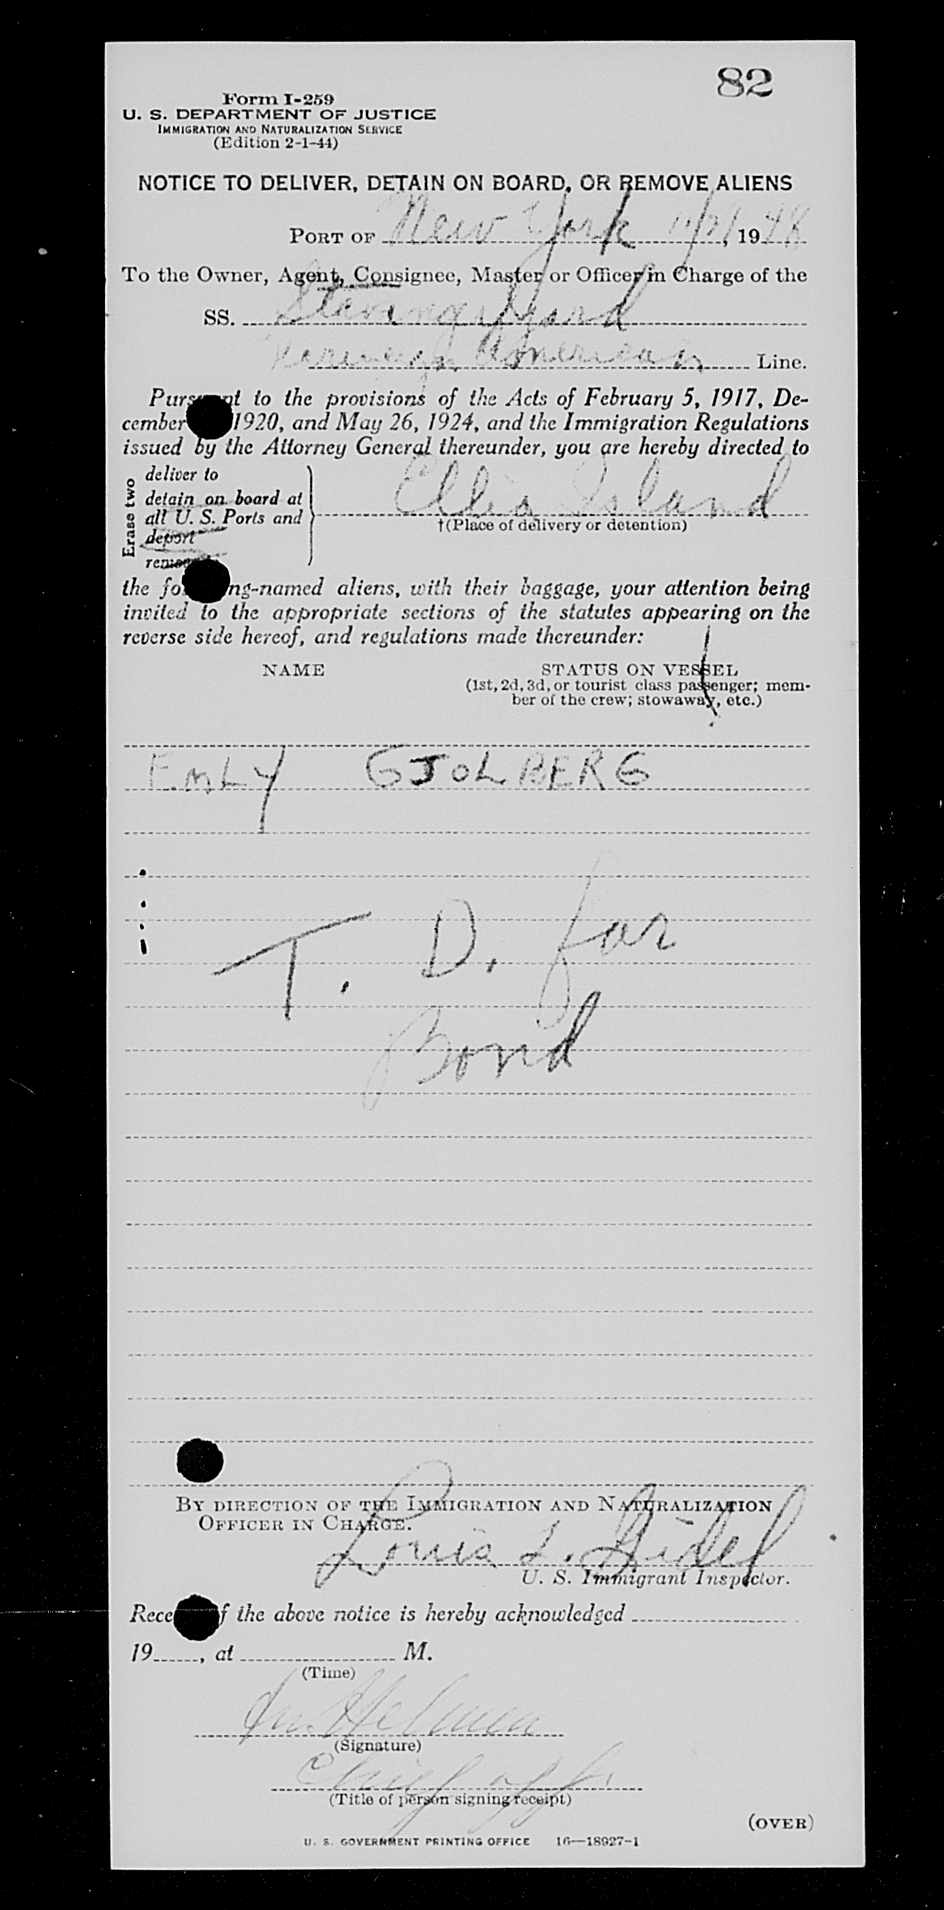 82
Form I-259
U. S. DEPARTMENT OF JUSTICE
IMMIGRATION AND NATURALIZATION SERVICE
(Edition 2-1-44)
NOTICE TO DELIVER, DETAIN ON BOARD, OR REMOVE ALIENS
PORT OF New York, 1948
To the Owner, Agent, Consignee, Master or Officer in Charge of the
SS. Stavangerfjord
American Line.
Pursuant to the provisions of the Acts of February 5, 1917, De-
cember 1920, and May 26, 1924, and the Immigration Regulations
issued by the Attorney General thereunder, you are hereby directed to
Erase two
deliver to
detain on board at
all U. S. Ports and
deport
remove
Ellis Island
†(Place of delivery or detention)
the following-named aliens, with their baggage, your attention being
invited to the appropriate sections of the statutes appearing on the
reverse side hereof, and regulations made thereunder:
NAME STATUS ON VESSEL
(1st, 2d, 3d, or tourist class passenger; mem-
ber of the crew; stowaway, etc.)
EMLY GJOLBERG
T. D. for
Bond
BY DIRECTION OF THE IMMIGRATION AND NATURALIZATION
OFFICER IN CHARGE.
Louis L.
U. S. Immigrant Inspector.
Receipt of the above notice is hereby acknowledged
19, at M.
(Time)
(Signature)
Chief off.
(Title of person signing receipt)
(OVER)
U. S. GOVERNMENT PRINTING OFFICE 16—18927-1